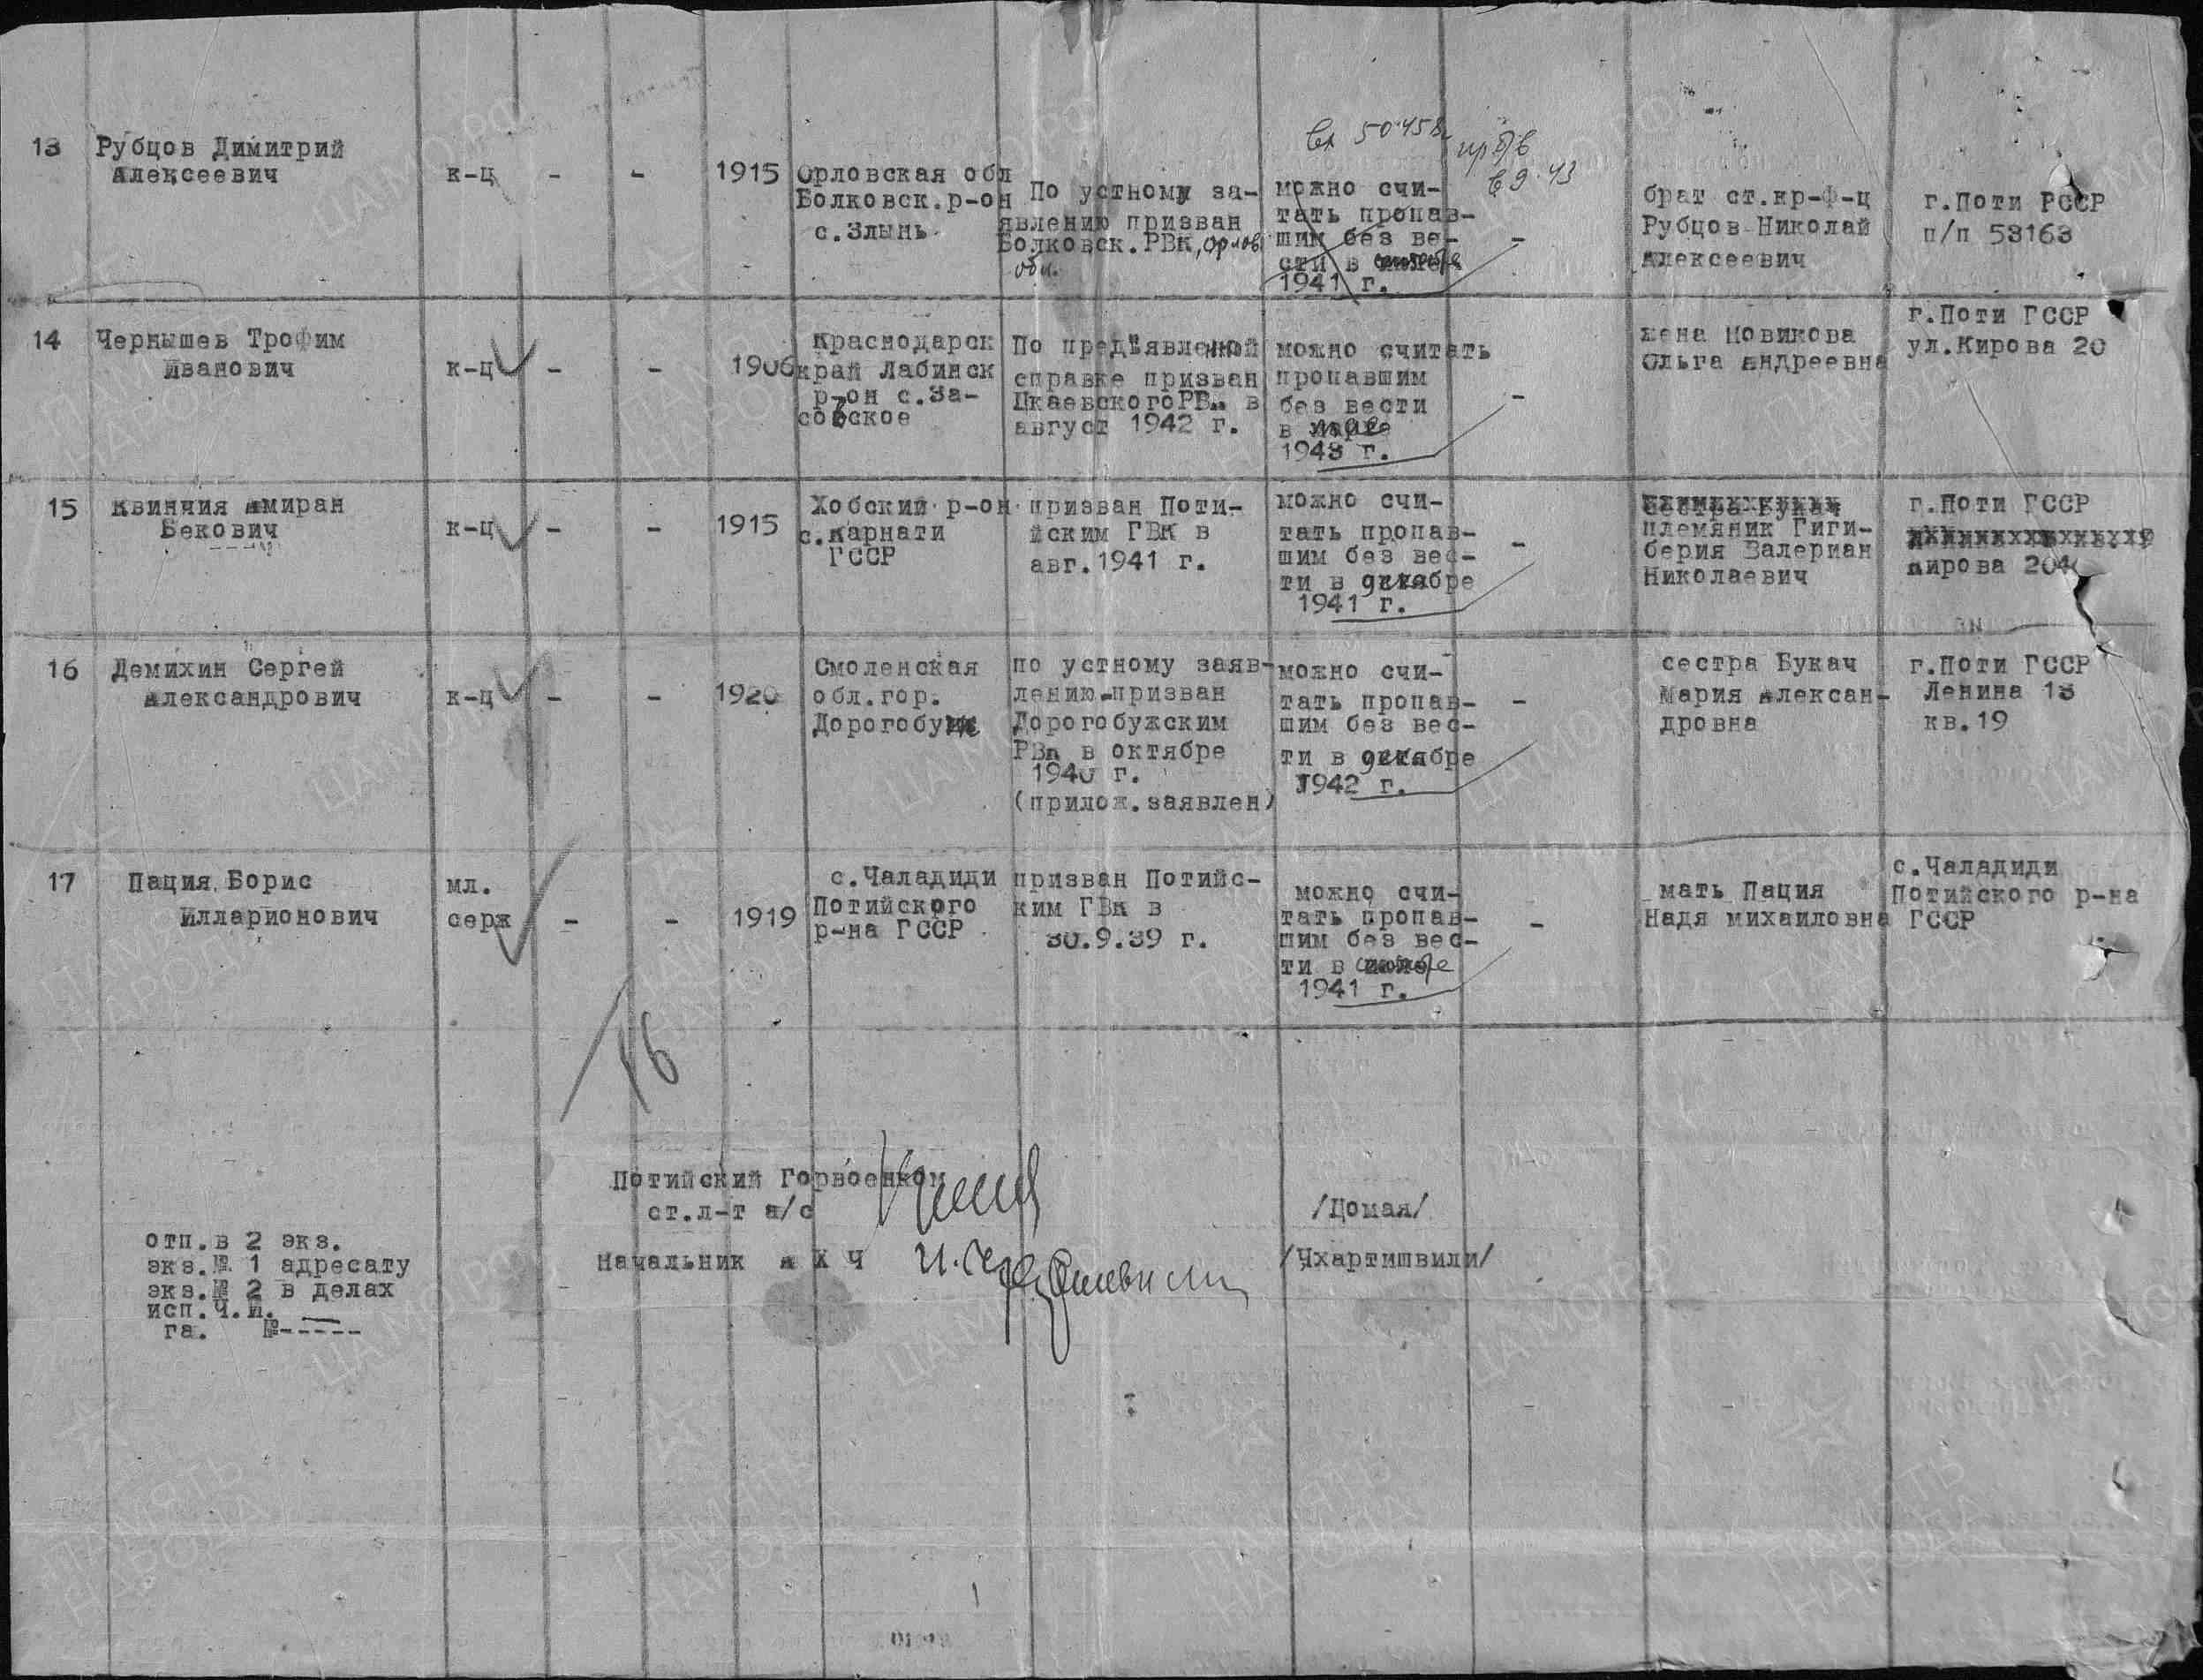 вх 50458
пр б/в
в 9.43
13 Рубцов Димитрий
Алексеевич
к-ц - - 1915
Орловская обл
Болковск.р-он
с.Злынь
По устному за-
явлению призван
Болковск.РВК, орлов
обл.
можно счи-
тать пропав-
шим без ве-
сти в сентябре
1941 г.
-
брат ст.кр-ф-ц
Рубцов Николай
Алексеевич
г.Поти РССР
п/п 53163
14 Чернышев Трофим
Иванович
к-ц - - 1906
Краснодарск
край Лабинск
р-он с.За-
совское
По предъявленной
справке призван
Цкаевского РВК в
август 1942 г.
можно считать
пропавшим
без вести
в мае
1943 г.
-
жена Новикова
Ольга Андреевна
г.Поти ГССР
ул.Кирова 20
15 Квинчия Амиран
Бекович
к-ц - - 1915
Хобский р-он
с.Карнати
ГССР
призван Поти-
йским ГВК в
авг.1941 г.
можно счи-
тать пропав-
шим без вес-
ти в декабре
1941 г.
-
сестра Букач
племяник Гиги-
берия Валериан
Николаевич
г.Поти ГССР
Кирова 204
16 Демихин Сергей
Александрович
к-ц - - 1920
Смоленская
обл.гор.
Дорогобуж
по устному заяв-
лению-призван
Дорогобужским
РВК в октябре
1940 г.
(прилож.заявлен)
можно счи-
тать пропав-
шим без вес-
ти в декабре
1942 г.
-
сестра Букач
Мария Алексан-
дровна
г.Поти ГССР
Ленина 13
кв.19
17 Пация Борис
Илларионович
мл.
серж - - 1919
с.Чаладиди
Потийского
р-на ГССР
призван Потийс-
ким ГВК в
30.9.39 г.
можно счи-
тать пропав-
шим без вес-
ти в сентябре
1941 г.
-
мать Пация
Надя михаиловна
с.Чаладиди
Потийского р-на
ГССР
16
Потийский Горвоенком
ст.л-т а/с
/Цомая/
Начальник А Х Ч
/Чхартишвили/
отп.в 2 экз.
экз.№ 1 адресату
экз.№ 2 в делах
исп.Ч.И.
га. №-----